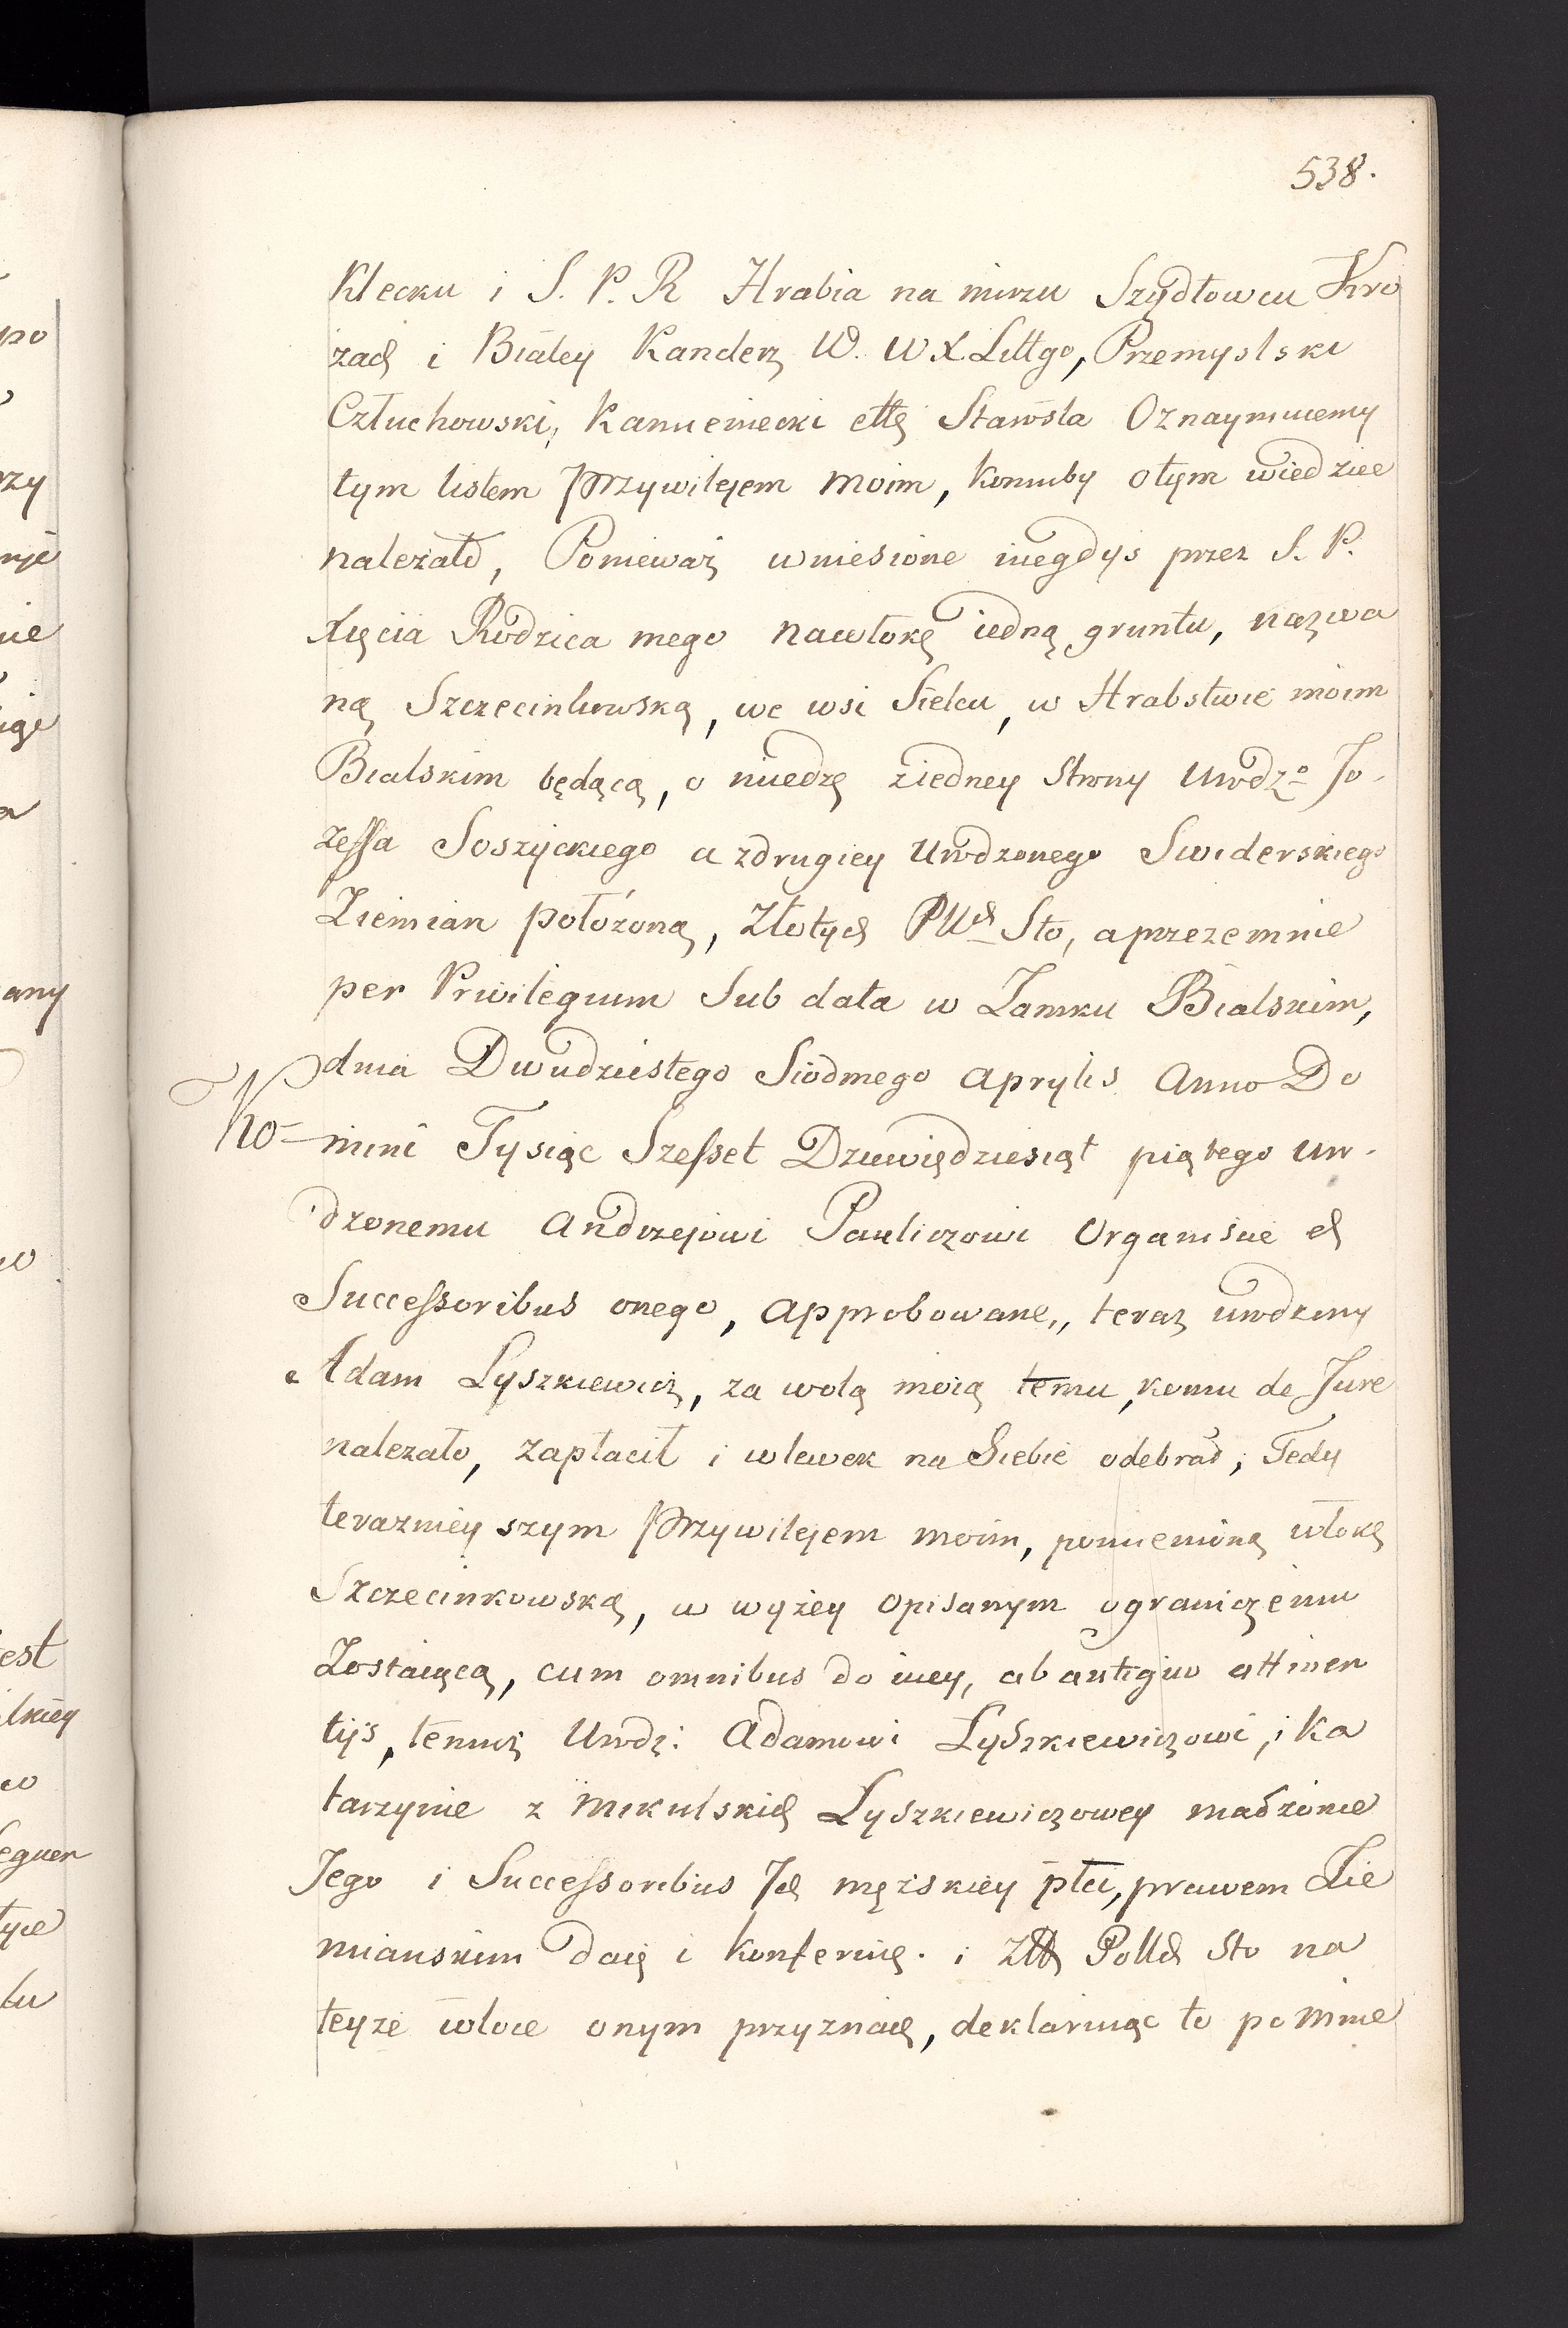 538.
Klecku i S. P. R Hrabia na mirzu Szydłowcu Kro
zach i Biáley Kanclerz W. W X Littgo, Przemyslski
Człuchowski, Kamieniecki ettc Stawsta Oznaymuiemy
tym listem Przywilejem moim, komuby otym wiedziec
należało, Ponieważ wniesione niegdys przez S. P.
Xięcia Rodzica mego nawłokę iedną gruntu, nazwa
ną Szczecinkowską, we wsi Sielcu, w Hrabstwie moim
Bialskim będącą, o miedzę ziedney Strony Urodzo Jo-
zeffa Soszyckiego a zdrugiey Urodzonego Swiderskiego
Ziemian położoną, Złotych Pllch Sto, a przezemnie
per Privilegium Sub data w Zamku Bialskim,
dnia Dwudziestego Siodmego Aprylis Anno Do
mini Tysiąc Szesset Dziewiędziesiąt piątego Uro-
dzonemu Andrzejowi Pauliczowi Organiscie et
Successoribus onego, approbowane, teraz urodzony
Adam Lyszkiewicz, za wolą moią temu, komu de Jure
nalezało, zapłacił i wlewek na Siebie odebrał; Tedy
terazniey szym Przywilejem moim, pomienioną włokę
Szczecinkowską, w wyżey opisanym ograniczeniu
Zostaiącą, cum omnibus do niey, ab antiquo attinen
tijs, temuż Urodz: Adamowi Lyszkiewiczowi, i Ka
tarzynie z Mikulskich Lyszkiewiczowey małżonce
Jego i Successoribus Ich męzskiey płci, prawem Zie
mianskim daię i konferuię. i Złł Pollch Sto na
teyze włoce onym przyznaię, deklaruiąc to po mnie